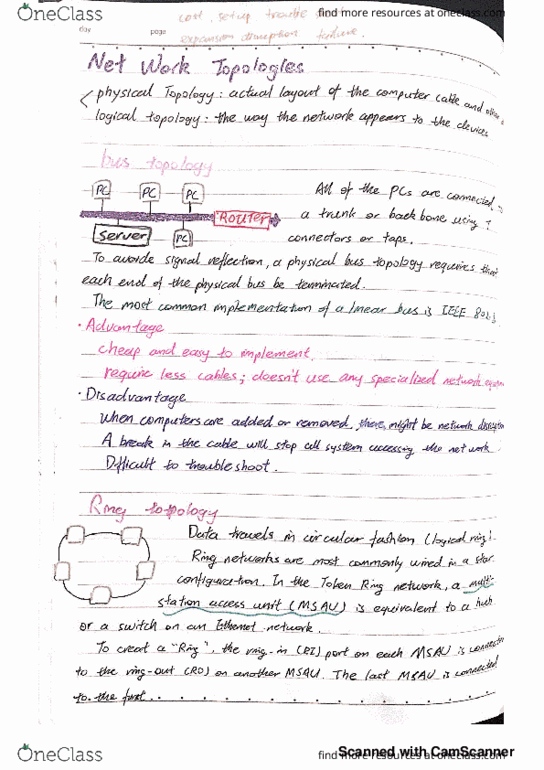 OneClass
find more resources at oneclass.com
cost, setup trouble
day
page
expansion disruption failure.
Net Work Topologies
physical Topology: actual layout of the computer cable and
logical topology: the way the network appears to the devices
bus topology
PC PC PC
Router
Server PC
All of the PCs are connected
a trunk or back bone using T
connectors or taps.
To avoide signal reflection, a physical bus topology requires that
each end of the physical bus be terminated.
The most common implementation of a linear bus is IEEE
· Advantage
cheap and easy to implement.
require less cables; doesn't use any specialized network
· Disadvantage
When computers are added or removed, there might be network
A break in the cable will stop all system accessing the net work
Difficult to trouble shoot.
Ring topology
Data travels in circular fashion (logical ring).
Ring networks are most commonly wired in a star
configuration. In the Token Ring network, a multi
station access unit (MSAU) is equivalent to a hub
or a switch on an Ethernet network.
To creat a "Ring", the ring-in (RI) port on each MSAU is connected
to the ring-out (RO) on another MSAU. The last MSAU is connected
to the first.
OneClass
find more resources at oneclass.com
Scanned with CamScanner